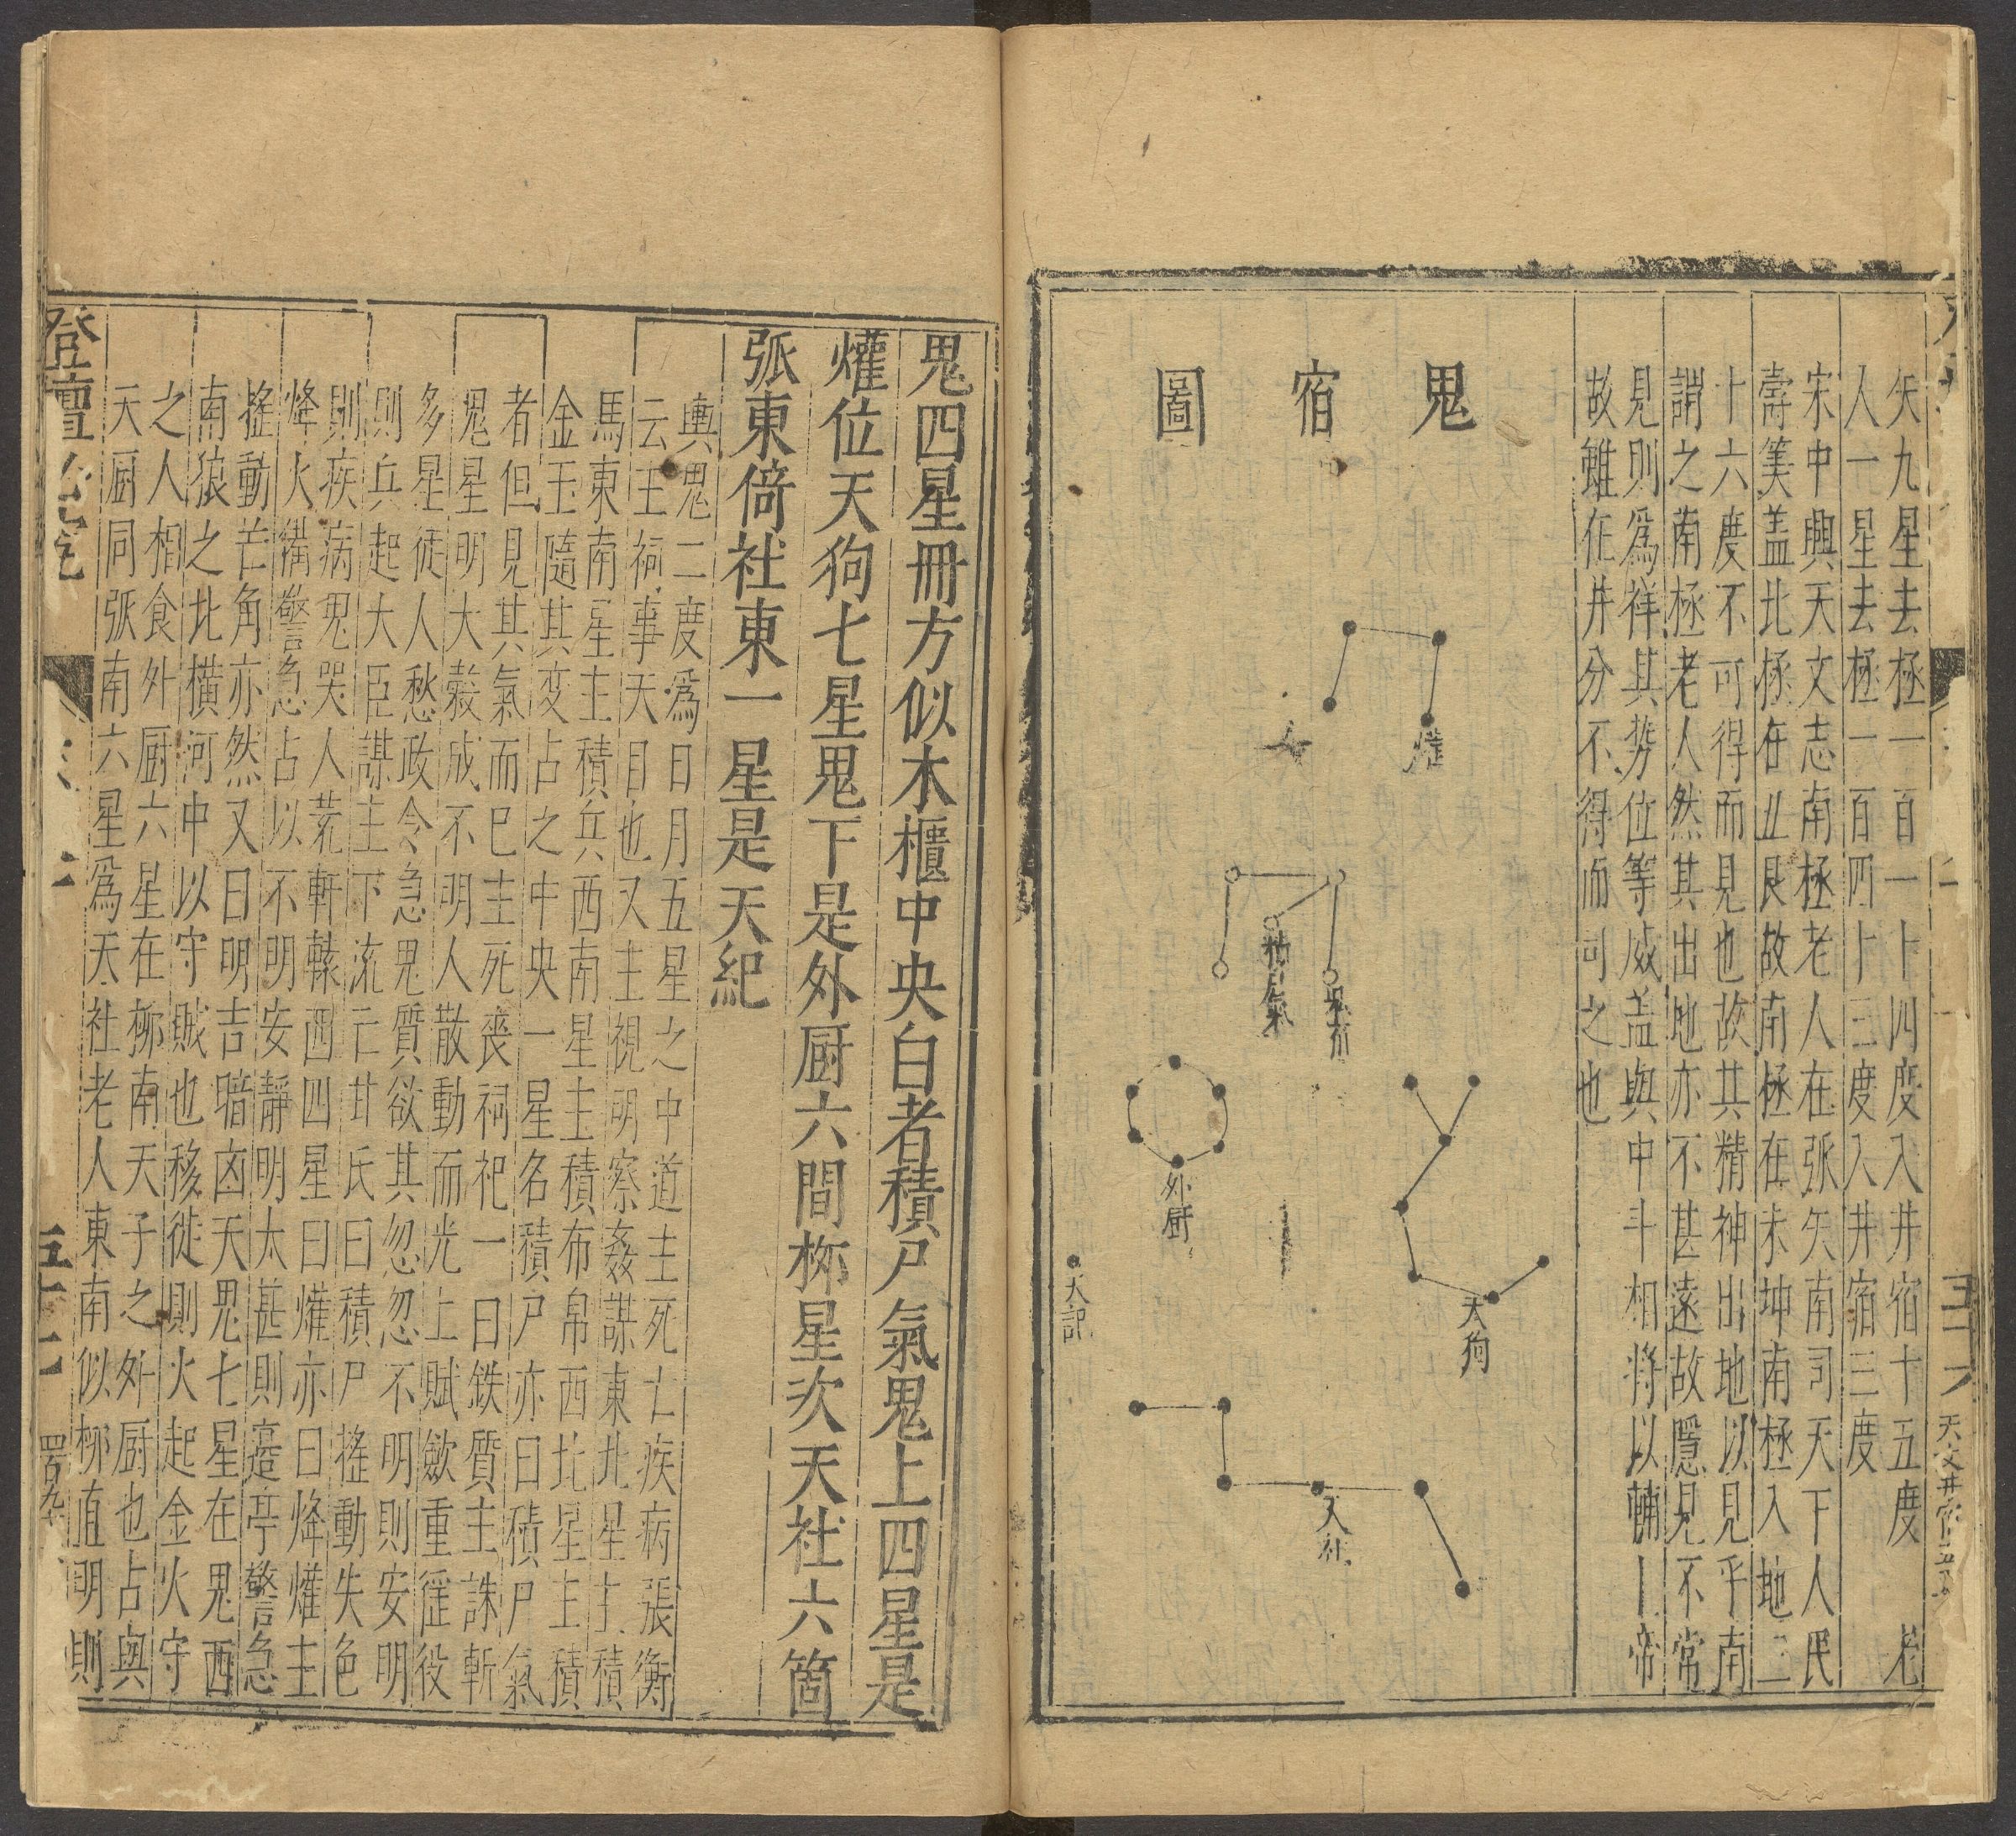 矢九星去極一百一十四度入井宿十五度 老
人一星去極一百四十三度入井宿三度
宋中興天文志南極老人在張矢南司天下人民
壽筭盖北極在丑艮故南極在未坤南極入地三
十六度不可得而見也故其精神出地以見乎南
謂之南極老人然其出地亦不甚遠故隱見不常
見則爲祥其勞位等威盖與中斗相將以輔上帝
故雖在井分不得而司之也
鬼宿圖
爟
積氣
鬼
外厨
天狗
天記
天社
天文井宿
鬼四星冊方似木櫃中央白者積尸氣鬼上四星是
爟位天狗七星鬼下是外厨六間栁星次天社六箇
弧東倚社東一星是天紀
輿鬼二度爲日月五星之中道主死亡疾病張衡
云主祠事天目也又主視明察姦謀東北星主積
馬東南星主積兵西南星主積布帛西北星主積
金玉隨其变占之中央一星名積尸亦曰積尸氣
者但見其氣而巳主死喪祠祀一曰鈇質主誅斬
鬼星明大穀成不明人散動而光上賦歛重徭役
多星徙人愁政令急鬼質欲其忽忽不明則安明
則兵起大臣謀主下流亡甘氏曰積尸搖動失色
則疾病鬼哭人荒軒轅西四星曰爟亦曰烽爟主
烽火備警急占以不明安靜明大甚則邊亭警急
搖動芒角亦然又曰明吉暗凶天鬼七星在鬼西
南狼之北橫河中以守賊也移徙則火起金火守
之人相食外厨六星在栁南天子之外厨也占與
天厨同弧南六星爲天社老人東南似栁直明則
登壇必究
五十一
四百九